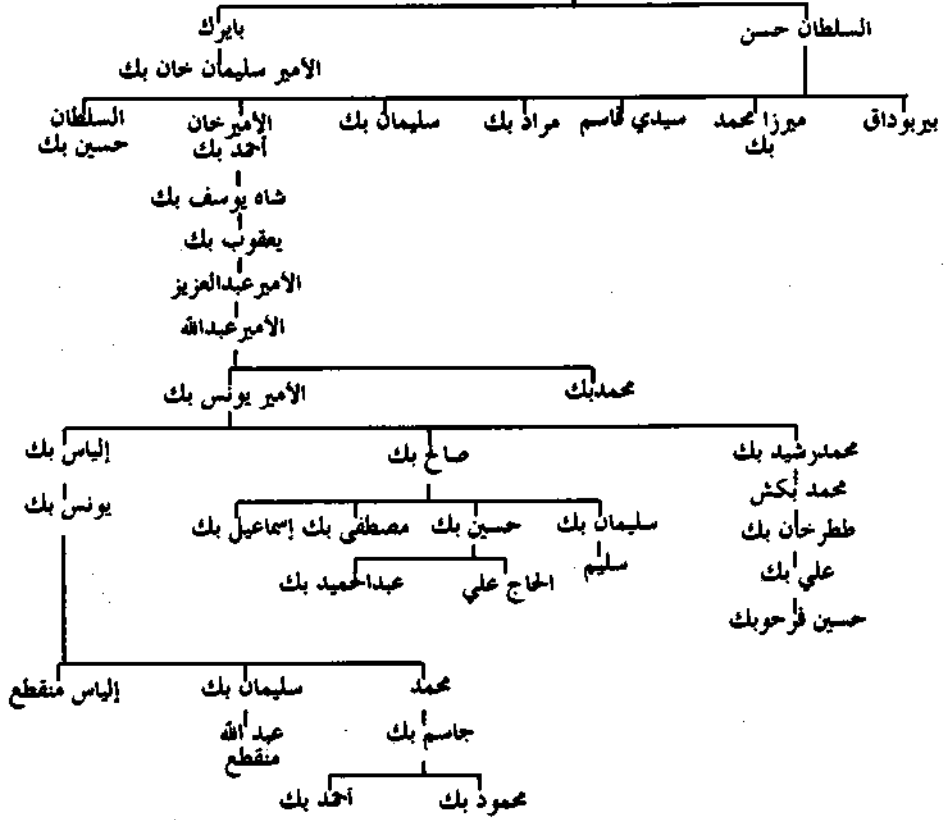 السلطان حسن بايرك
الأمير سليمان خان بك
بيربوداق ميرزا محمد بك سيدي قاسم مراد بك سليمان بك الأمير خان أحمد بك السلطان حسين بك
شاه يوسف بك
يعقوب بك
الأمير عبدالعزيز
الأمير عبدالله
محمدبك الأمير يونس بك
محمدرشيد بك صالح بك إلياس بك
محمد بكش يونس بك
ططرخان بك سليمان بك حسين بك مصطفى بك إسماعيل بك
علي بك سليم الحاج علي عبدالحميد بك
حسين فرحوبك
محمد سليمان بك إلياس منقطع
جاسم بك عبد الله
منقطع
محمود بك أحمد بك